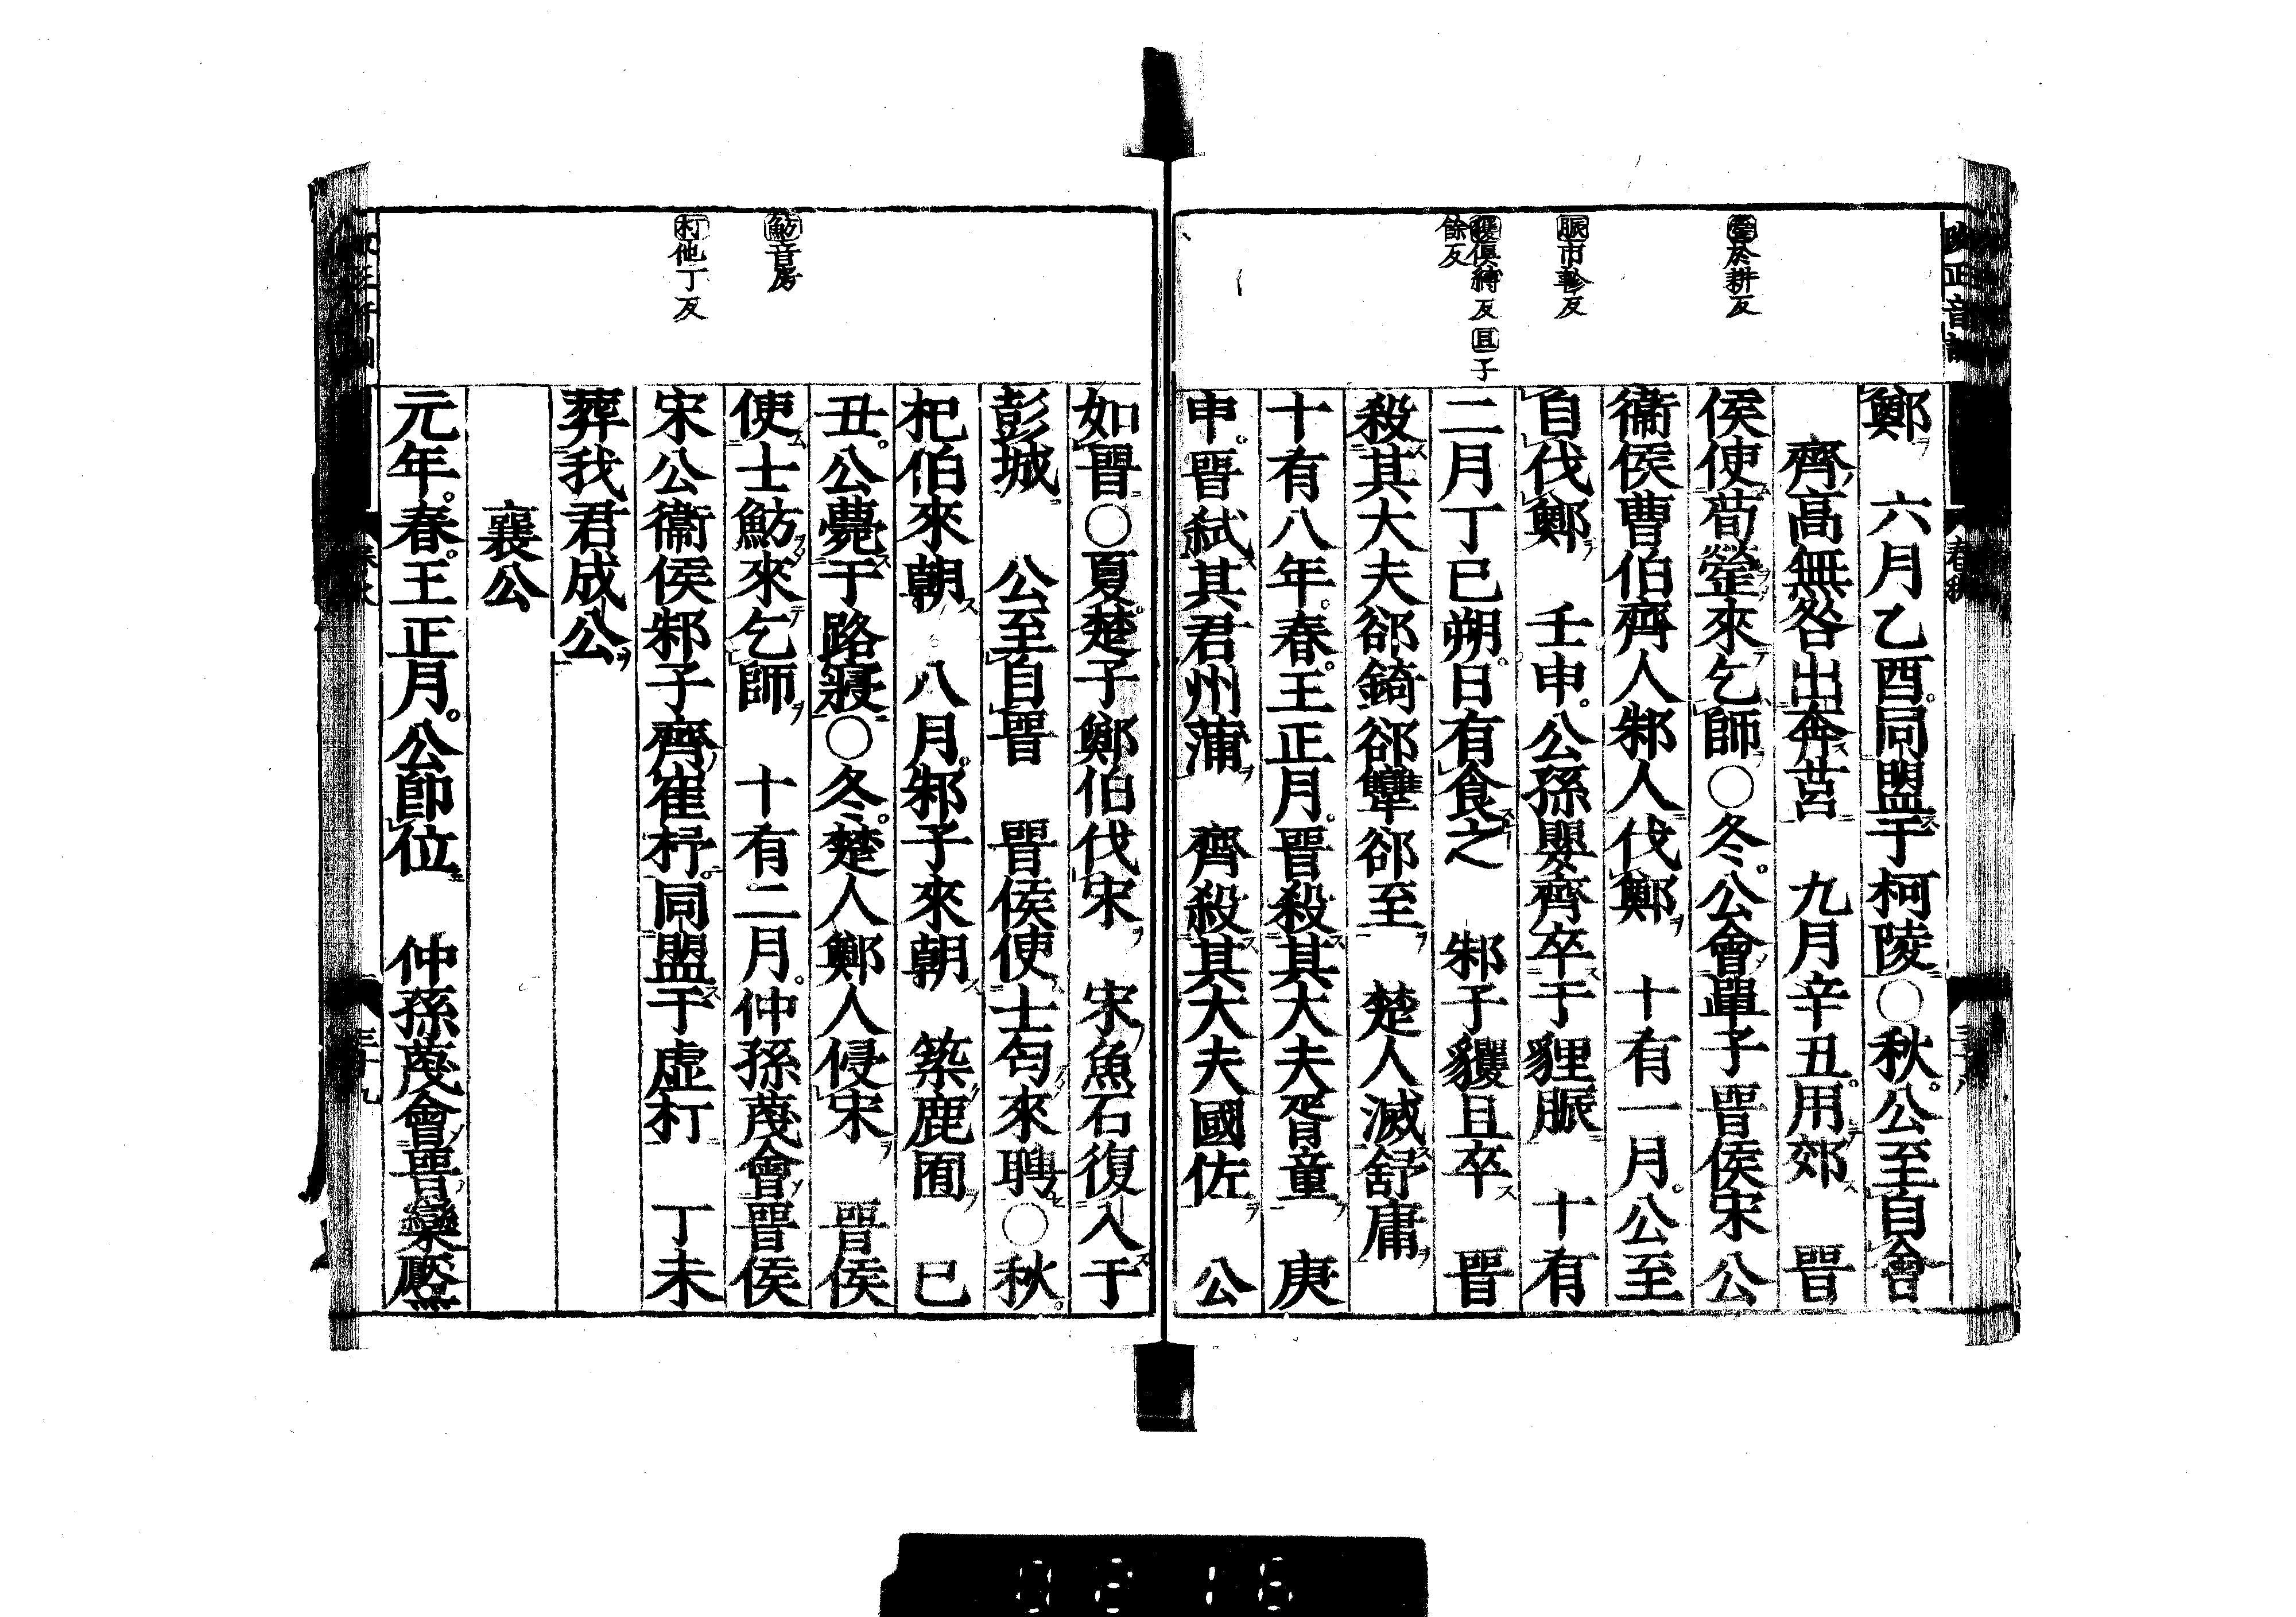 罃於耕反
脤市軫反
貜俱縛反 且子
餘反
鄭 六月乙酉同盟于柯陵○秋公至自會
齊高無咎出奔莒 九月辛丑用郊 晉
侯使荀罃來乞師○冬公會單子晉侯宋公
衞侯曹伯齊人邾人伐鄭 十有一月公至
自伐鄭 壬申公孫嬰齊卒于貍脤 十有
二月丁巳朔日有食之 邾子貜且卒 晉
殺其大夫郤錡郤犫郤至 楚人滅舒庸
十有八年春王正月晉殺其大夫胥童 庚
申晉弑其君州蒲 齊殺其大夫國佐 公
魴音房
朾他丁反
如晉○夏楚子鄭伯伐宋 宋魚石復入于
彭城 公至自晉 晉侯使士匄來聘○秋
杞伯來朝 八月邾子來朝 築鹿囿 己
丑公薨于路寢○冬楚人鄭人侵宋 晉侯
使士魴來乞師 十有二月仲孫蔑會晉侯
宋公衞侯邾子齊崔杼同盟于虛朾 丁未
葬我君成公
襄公
元年春王正月公卽位 仲孫蔑會晉欒黶